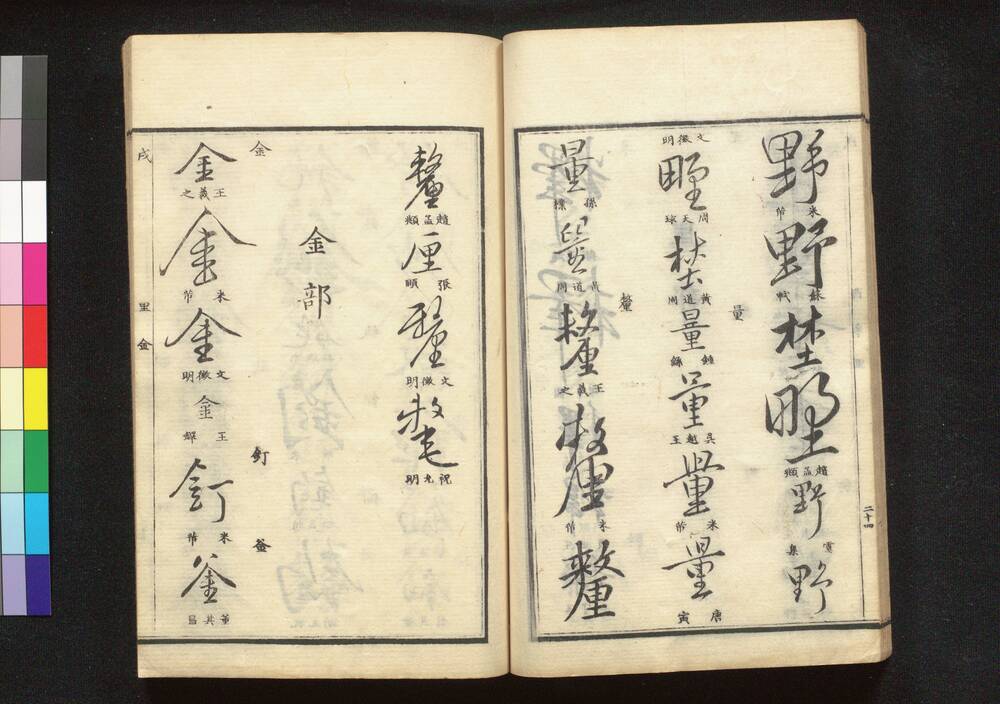 野
米芾
野
蘇軾
埜
野
趙孟頫
野
野
二十四
量
文徵明
野
周天球
埜
黃道周
量
鍾繇
量
吳越王
量
米芾
量
唐寅
釐
量
量
黃道周
釐
王羲之
釐
米芾
釐
釐
趙孟頫
厘
張
釐
文徵明
釐
祝允明
金部
金
釘
釜
金
王羲之
金
米芾
金
文徵明
金
王
釘
米芾
釜
董其昌
戌
里
金